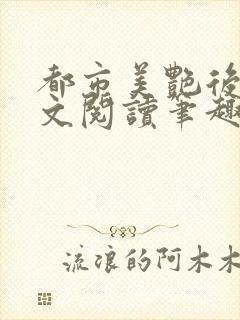 都市美艷後
文閱讀筆趣
流浪的阿木木